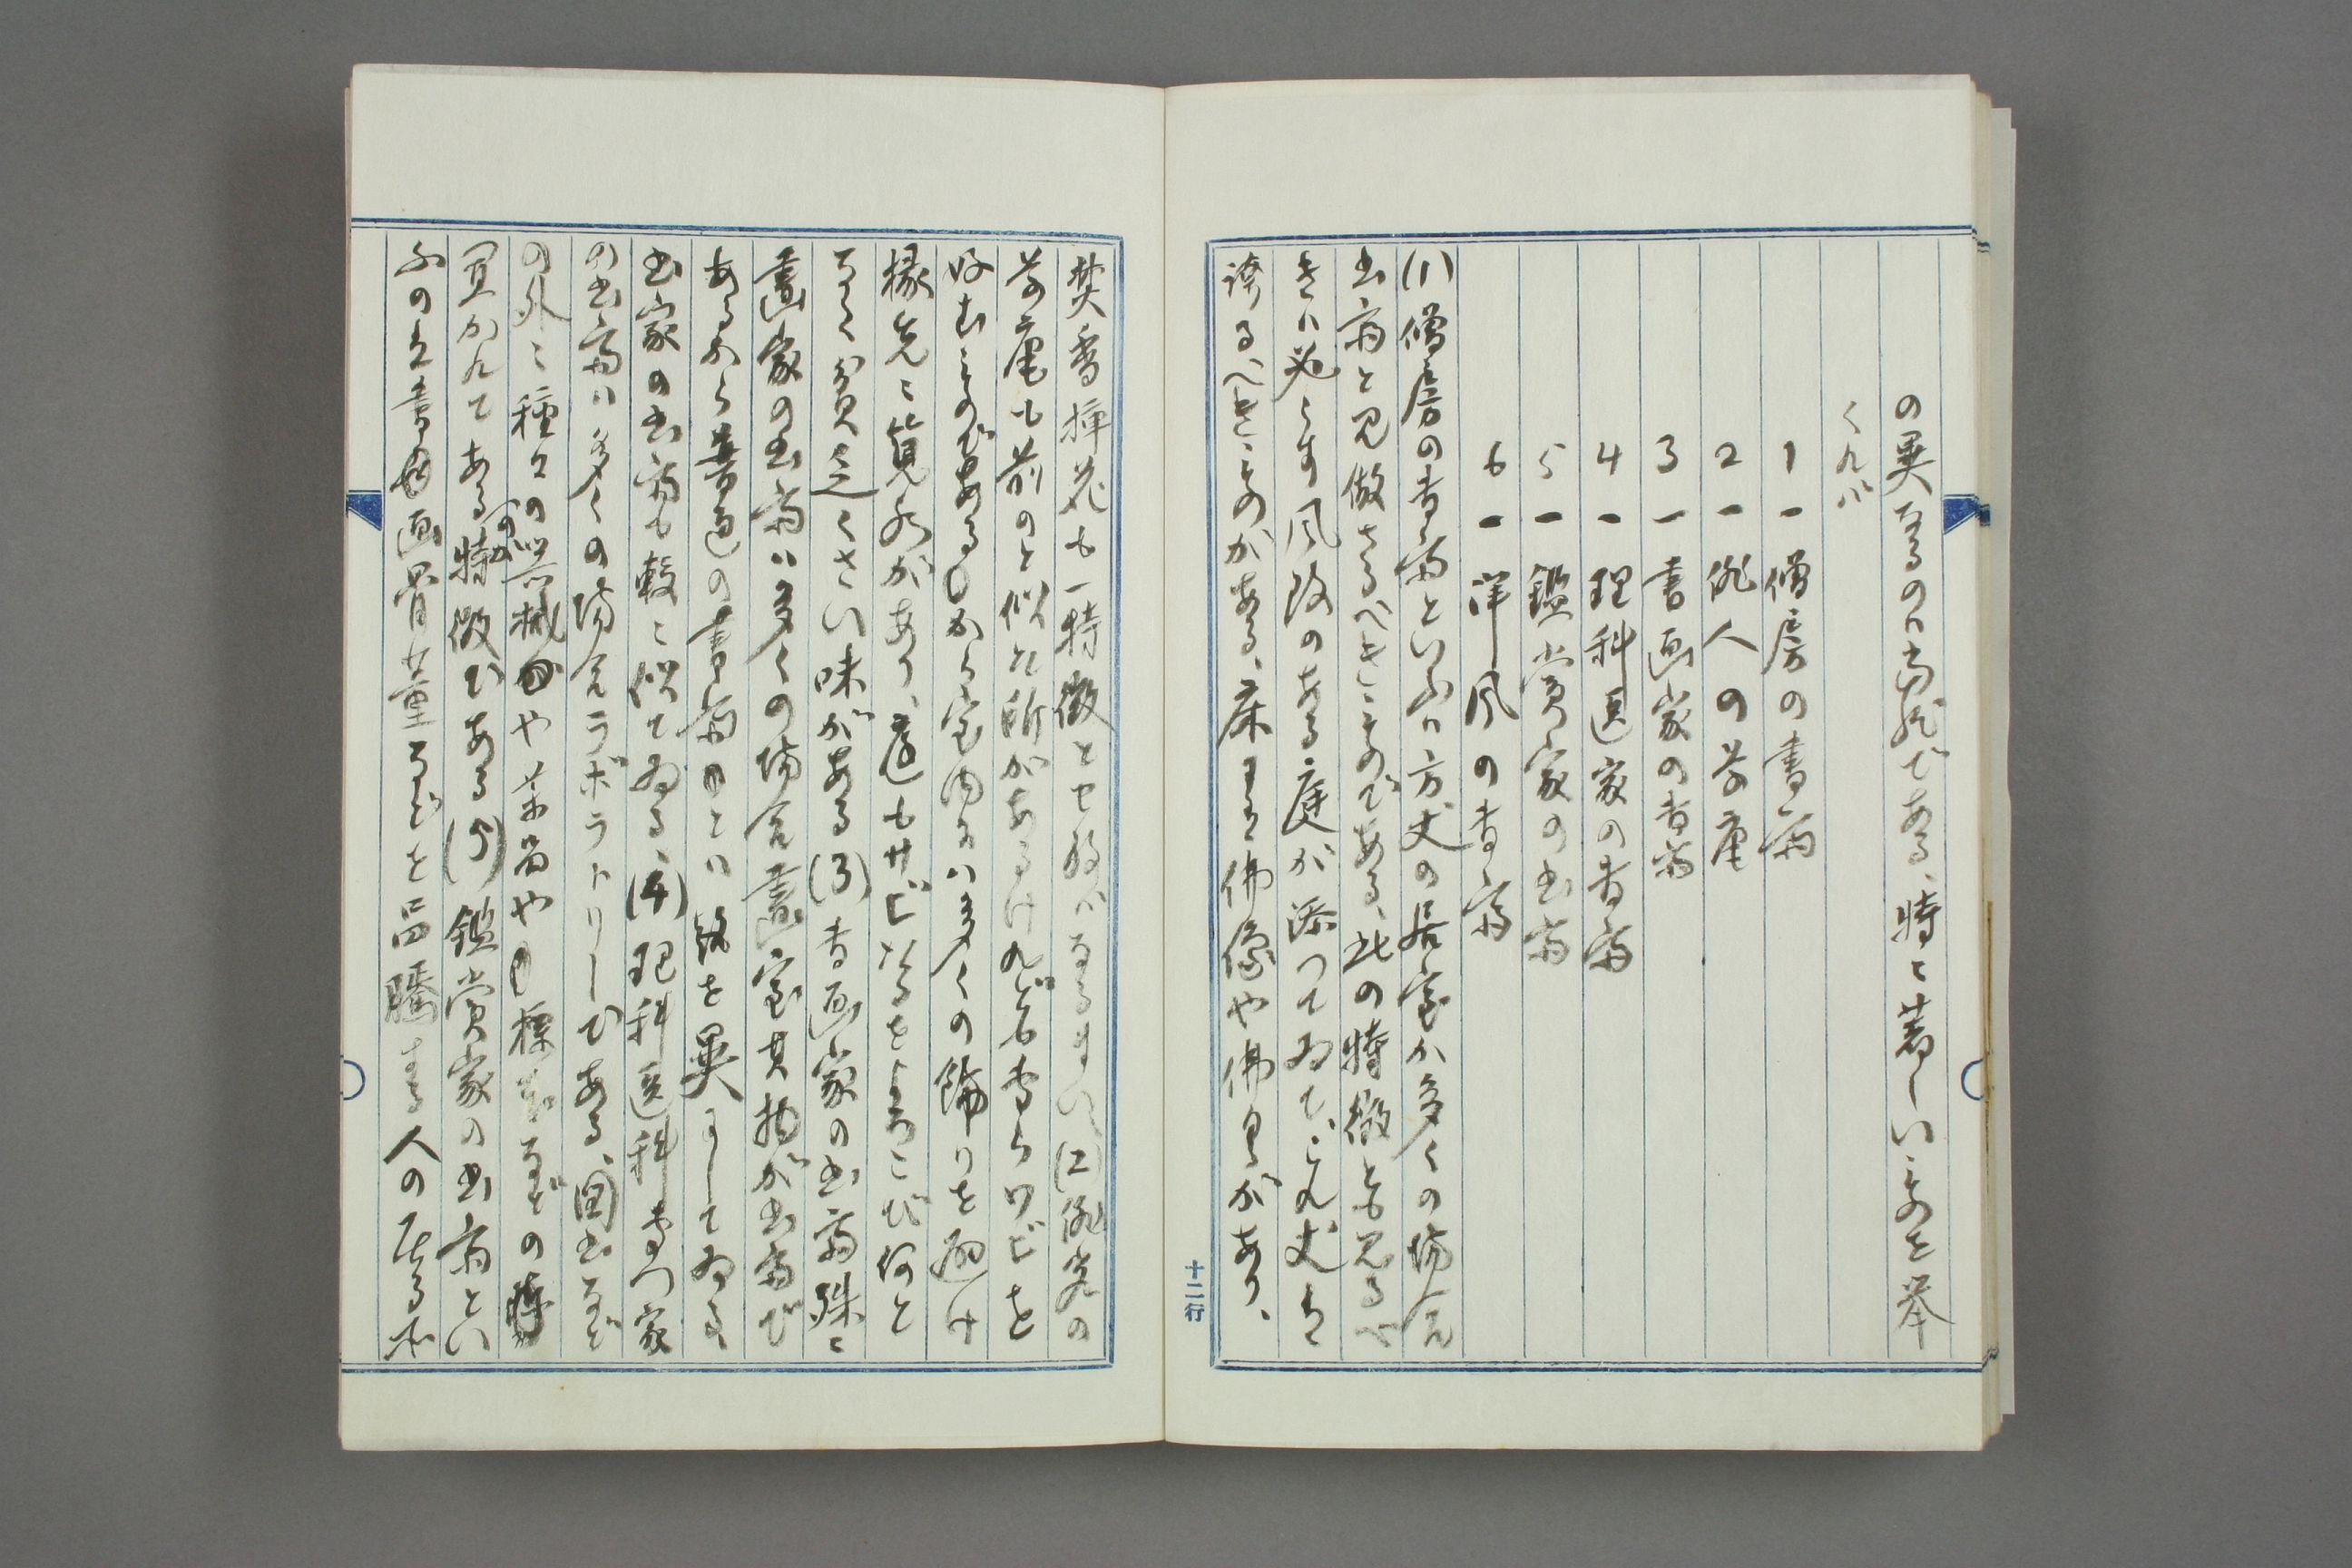 の異なるのハ当然である、特に著しいものを挙
くれバ
1 ー 僧房の書斎
2 ー 俳人の草庵
3 ー 書画家の書斎
4 ー 理科医家の書斎
5 ー 鑑賞家の書斎
6 ー 洋風の書斎
(1)僧房の書斎といふハ方丈の居室か多くの場合
書斎と見做さるべきものである、此の特徴とも見るべ
きハ必らず風致のある庭が添つてゐて、これ丈は
誇るべきものがある、床には佛像や佛具があり、
十二行
焚香挿花も一特徴とせねバなるまい、(2)俳家の
草庵も前のと似た所があるけれども専らワビを
好むものであるから室内にハ多くの飾りを避け
縁先に筧水があり、庭もサビたるをよろこび何と
なく貧乏くさい味がある(3)書画家の書斎殊に
畫家の書斎ハ多くの場合畫室其物が書斎で
あるから普通の書斎とハ趣を異にしてゐる、
書家の書斎も較に似てゐる、(4)理科医科専門家
の書斎ハ多くの場合ラボラトリーである、図書など
の外に種々の器械や薬品や標本などの
置かれてあるのが特徴である(5)鑑賞家の書斎とい
ふのは書画骨董などを品隲する人の居る所